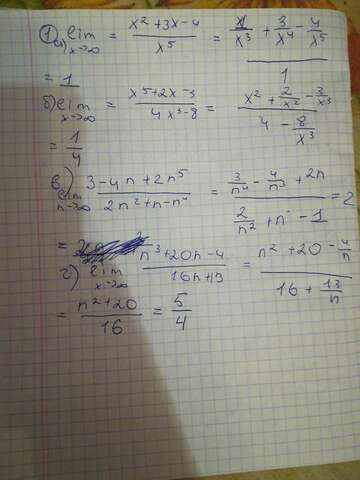 1) а) lim x→∞ = x² + 3x - 4 / x⁵ = 1/x³ + 3/x⁴ - 4/x⁵ / 1
= 1
б) lim x→∞ = x⁵ + 2x - 3 / 4x³ - 8 = x² + 2/x² - 3/x³ / 4 - 8/x³
= 1/4
в) lim n→∞ 3 - 4n + 2n⁵ / 2n² + n - n⁴ = 3/n⁴ - 4/n³ + 2n / 2/n² + n - 1 = 2
=
г) lim x→∞ n³ + 20n - 4 / 16n + 13 = n² + 20 - 4/n / 16 + 13/n
= n² + 20 / 16 = 5/4